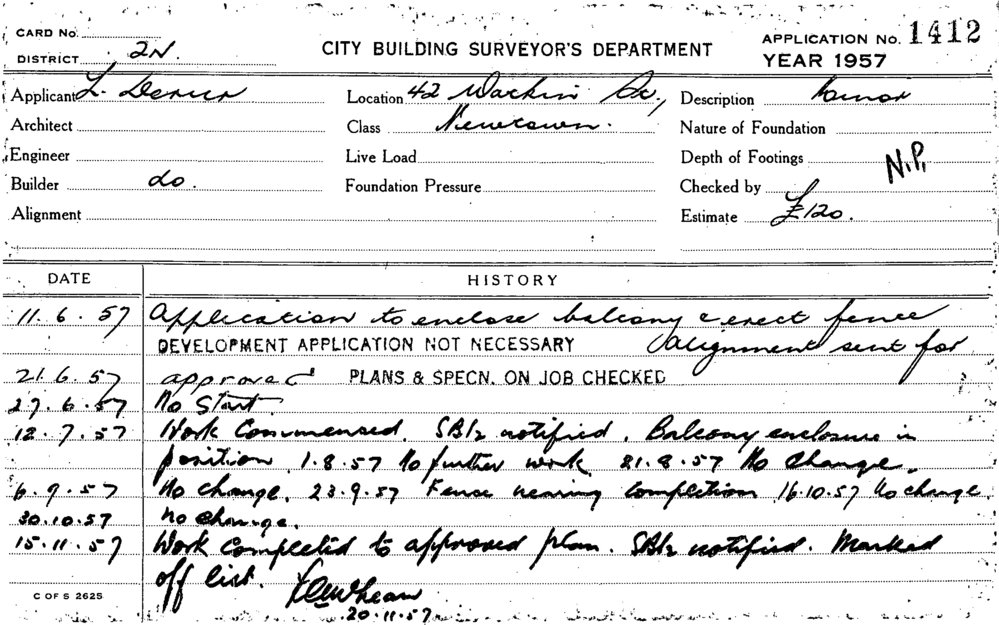 CARD No.
DISTRICT 2N.
CITY BUILDING SURVEYOR'S DEPARTMENT
APPLICATION No. 1412
YEAR 1957
Applicant L.
Location 42
Description Minor
Architect
Class Newtown.
Nature of Foundation
Engineer
Live Load
Depth of Footings
N.P.
Builder do.
Foundation Pressure
Checked by
Alignment
Estimate £120.
DATE HISTORY
11. 6. 57 Application to enclose balcony & erect fence
DEVELOPMENT APPLICATION NOT NECESSARY alignment sent for
21. 6. 57 approved PLANS & SPECN. ON JOB CHECKED
27. 6. 57 No Start.
12. 7. 57 Work Commensed. SB1/2 notified. Balcony enclosure in
position 1.8.57 No further work 21.8.57 No Change.
6. 9. 57 No change. 23.9.57 Fense nearing completion 16.10.57 No change.
30.10.57 No change.
15.11.57 Work completed to approved plan. SB1/2 notified. Marked
off list.
20.11.57
C OF S 2625